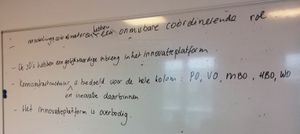 hebben
een onmisbare coördinerende rol
- De 3O's hebben een gelijkwaardige inbreng in het innovatieplatform
- Kennisinfrastructuur is bedoeld voor de hele kolom: PO, VO, MBO, HBO, WO
en innovatie daarbinnen
- Het innovatieplatform is overbodig.